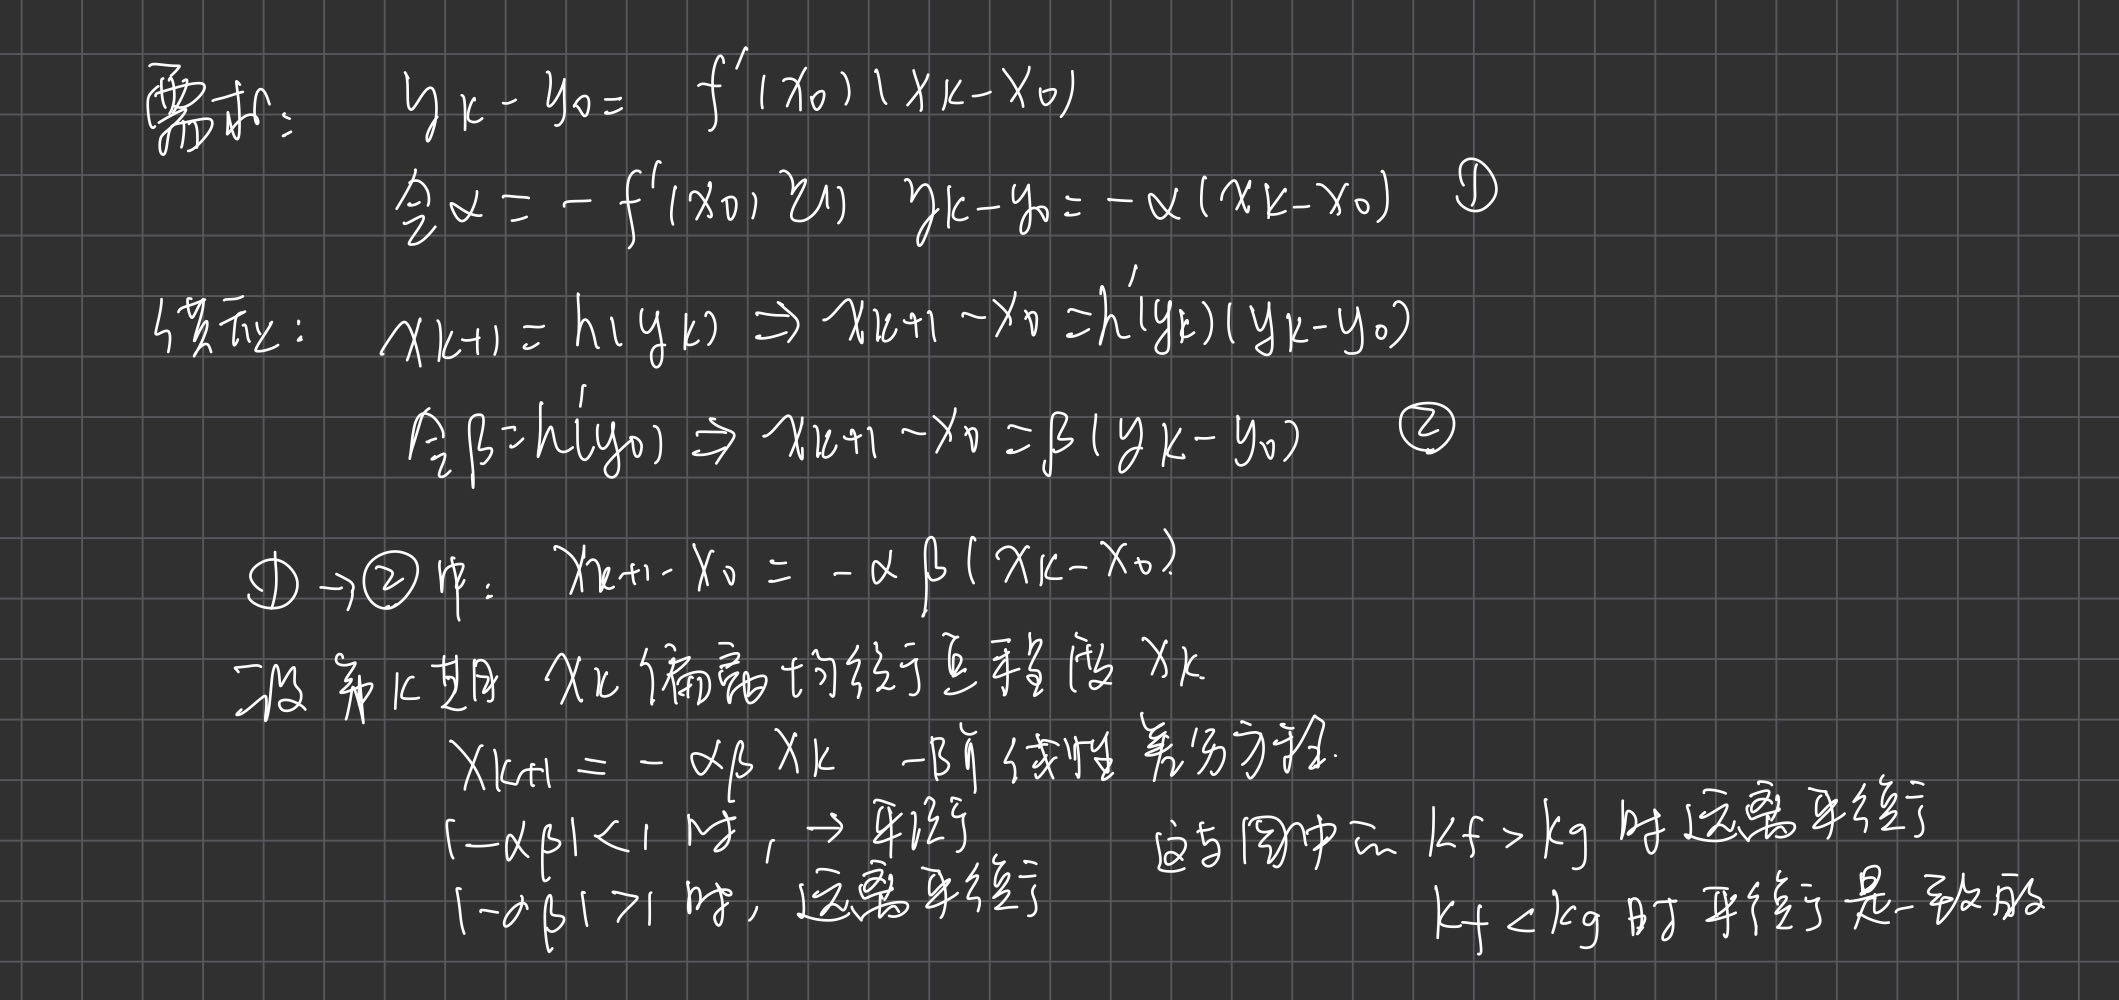 需求: yₖ - y₀ = f'(x₀)(xₖ - x₀)
令α = -f'(x₀) 则 yₖ - y₀ = -α(xₖ - x₀) ①
供应: xₖ₊₁ = h(yₖ) ⇒ xₖ₊₁ - x₀ = h'(yₖ)(yₖ - y₀)
令β = h'(y₀) ⇒ xₖ₊₁ - x₀ = β(yₖ - y₀) ②
① → ② 中: xₖ₊₁ - x₀ = -αβ(xₖ - x₀)
设第k期 xₖ 偏离均衡点程度 Xₖ
Xₖ₊₁ = -αβXₖ 一阶线性差分方程.
|-αβ| < 1 时, → 平衡
|-αβ| > 1 时, 远离平衡
这与图中 kf > kg 时远离平衡
kf < kg 时平衡是一致的